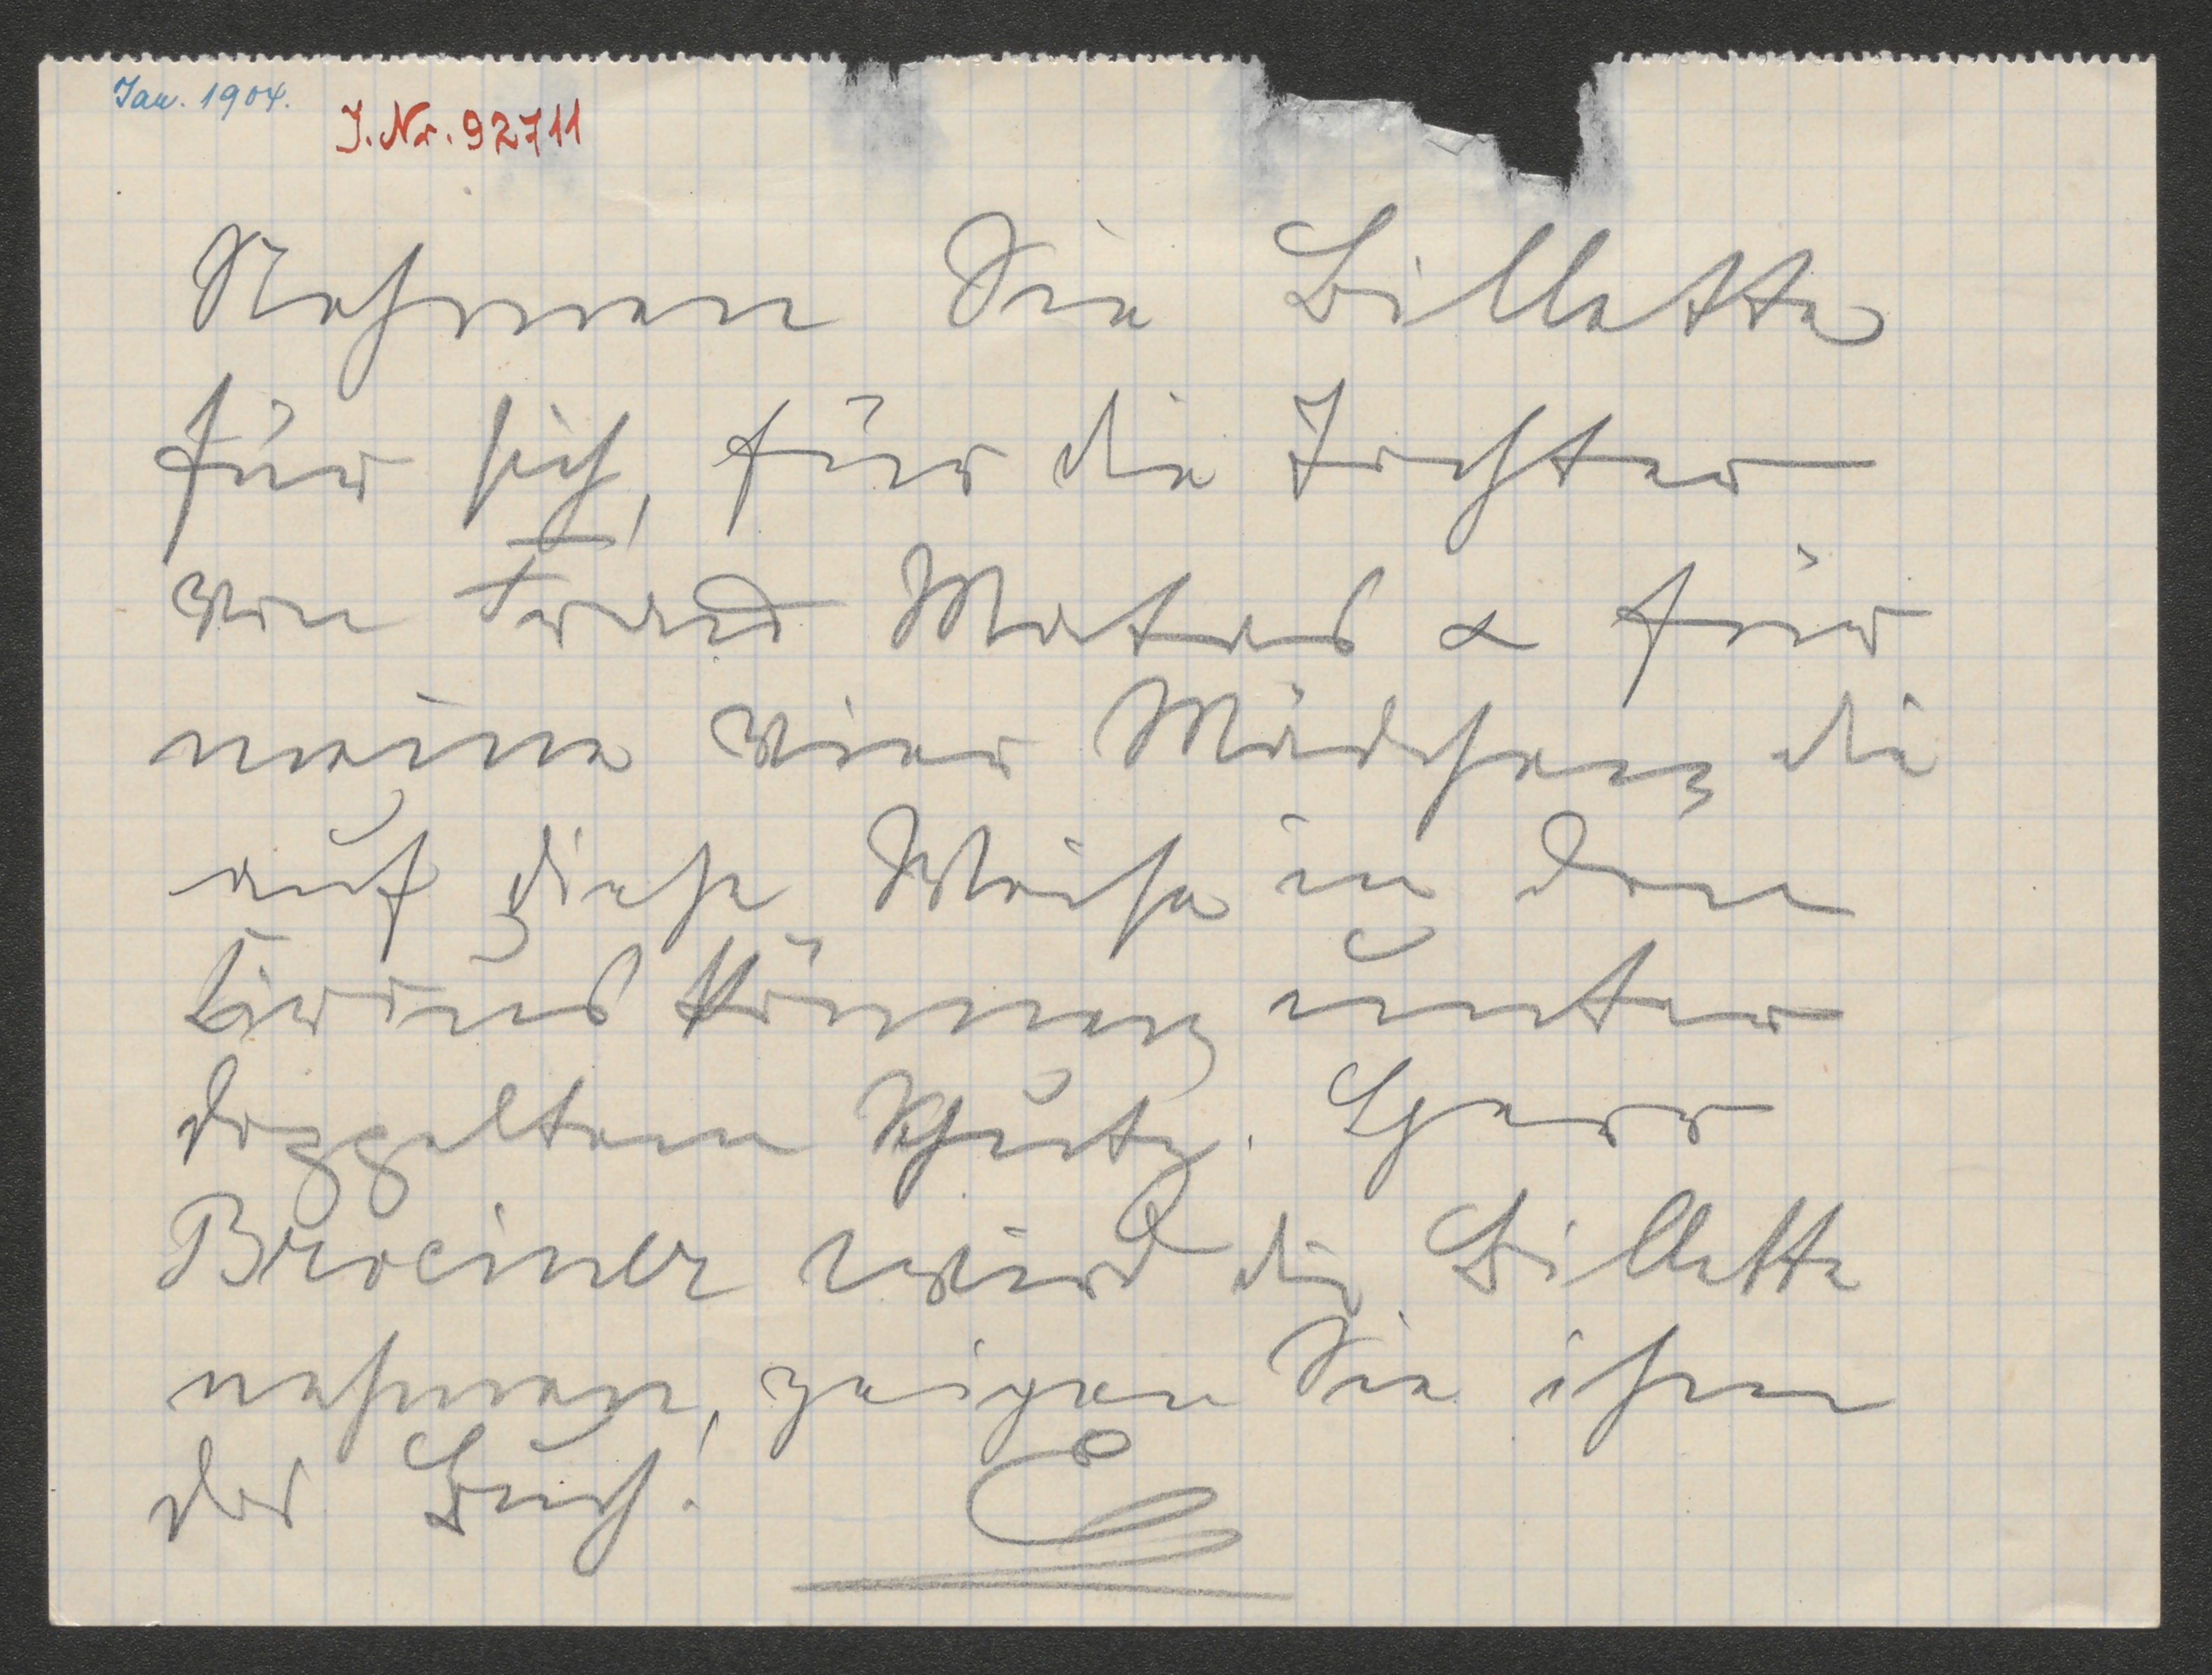 Jan. 1904.
J.Nr. 92711
Nehmen Sie Billette
für sich, für die Tochter
von Frau Mataš & für
meine vier Mädchen, die
auf diese Weise in den
Circus können unter
doppeltem Schutz. Herr
Brociner wird die Billette
nehmen, zeigen Sie ihm
das Buch!